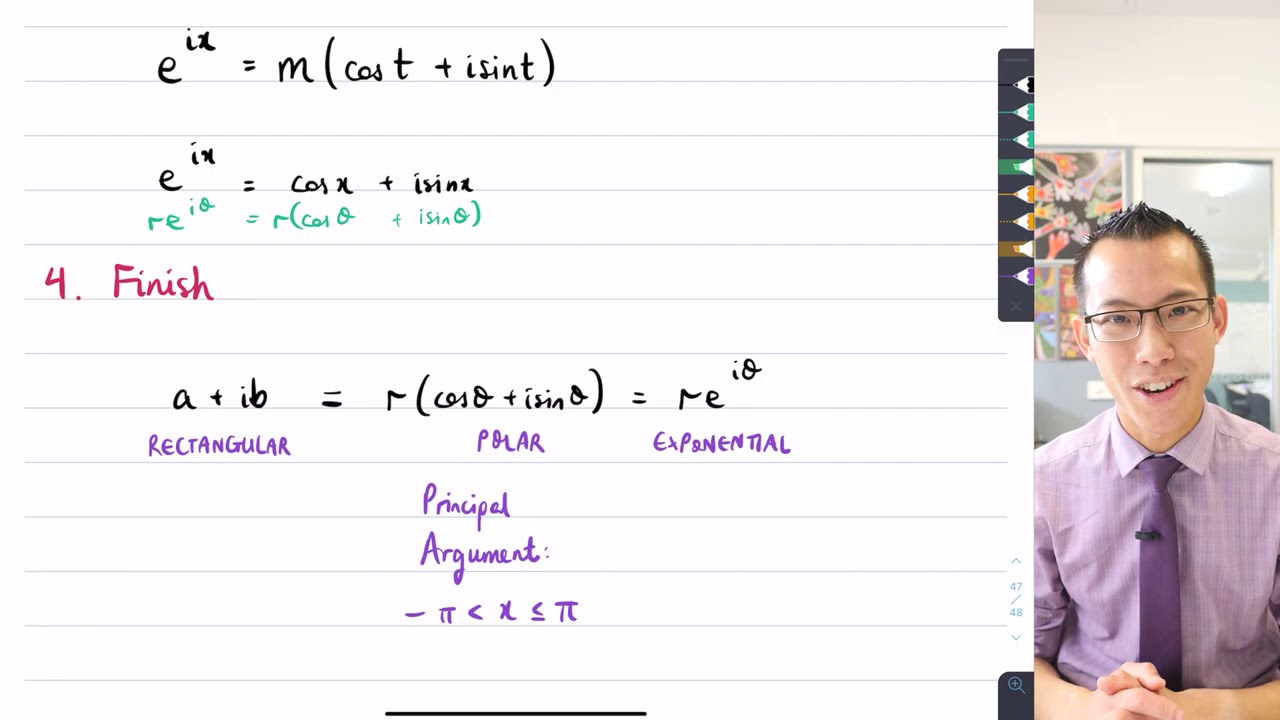 e^{ix} = m(cos t + i sin t)
e^{ix} = cos x + i sin x
re^{iθ} = r(cos θ + i sin θ)
4. Finish
a + ib = r(cosθ + i sin θ) = re^{iθ}
RECTANGULAR POLAR EXPONENTIAL
Principal
Argument:
- π < x ≤ π
47
/
48